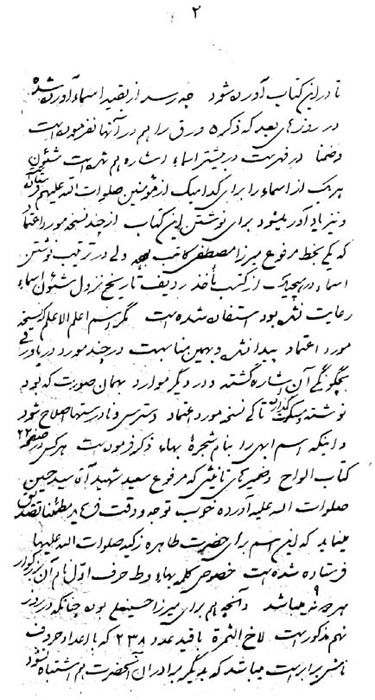 ۲
تا در این کتاب آورده شود چه رسد از بقیه اسماء آورده شده
در روزهای بعد که ذکر ۵ ورق را هم در آنها نفرموده است
و ضمنا در فهرست در بیشتر اسماء اشاره هم نشده است شئون
هر یک از اسماء را برای کدامیک از مؤمنین صلوات الله علیهم فرستاده
و نیز یادآور میشود برای نوشتن این کتاب از چند نسخه مورد اعتماد
که یکی بخط مرفوع میرزا مصطفی کاتب بوده ولی در ترتیب نوشتن
اسماء در هیچیک از کتب مأخذ ردیف تاریخ نزول شئون اسماء
رعایت نشده بود استفاده شده است مگر اسم اعلم الاعلم که نسخه
مورد اعتماد پیدا نشد و بهمین مناسبت در چند مورد در پاورقی
بچگونگی آن اشاره گشته و در دیگر موارد بهمان صورت که بوده
نوشته تا که نسخه مورد اعتماد دسترسی و نادرستیها اصلاح شود
و اینکه اسم ابهی را بنام شجرة بهاء ذکر فرموده است هر کس در صفحه ۲۲
کتاب الواح و ضمیرهای تأنیثی که مرفوع سعید شهید آقا سید حسین
صلوات الله علیه آورده خوب توجه و دقت فرماید مطمئنا تصدیق
مینماید که این اسم برای حضرت طاهره زکیه صلوات الله علیها
فرستاده شده است خصوص کلمه بهاء و ط حرف اول نام آن بزرگوار
هر دو ۹ میباشد و آنچه هم برای میرزا حسینعلی بوده چنانکه در روز
نهم مذکور است لاخ الثمرة با قید عدد ۲۳۸ که با اعداد حروف
نامش برابر است میباشد که بدیگر برادران آنحضرت هم اشتباه نشود